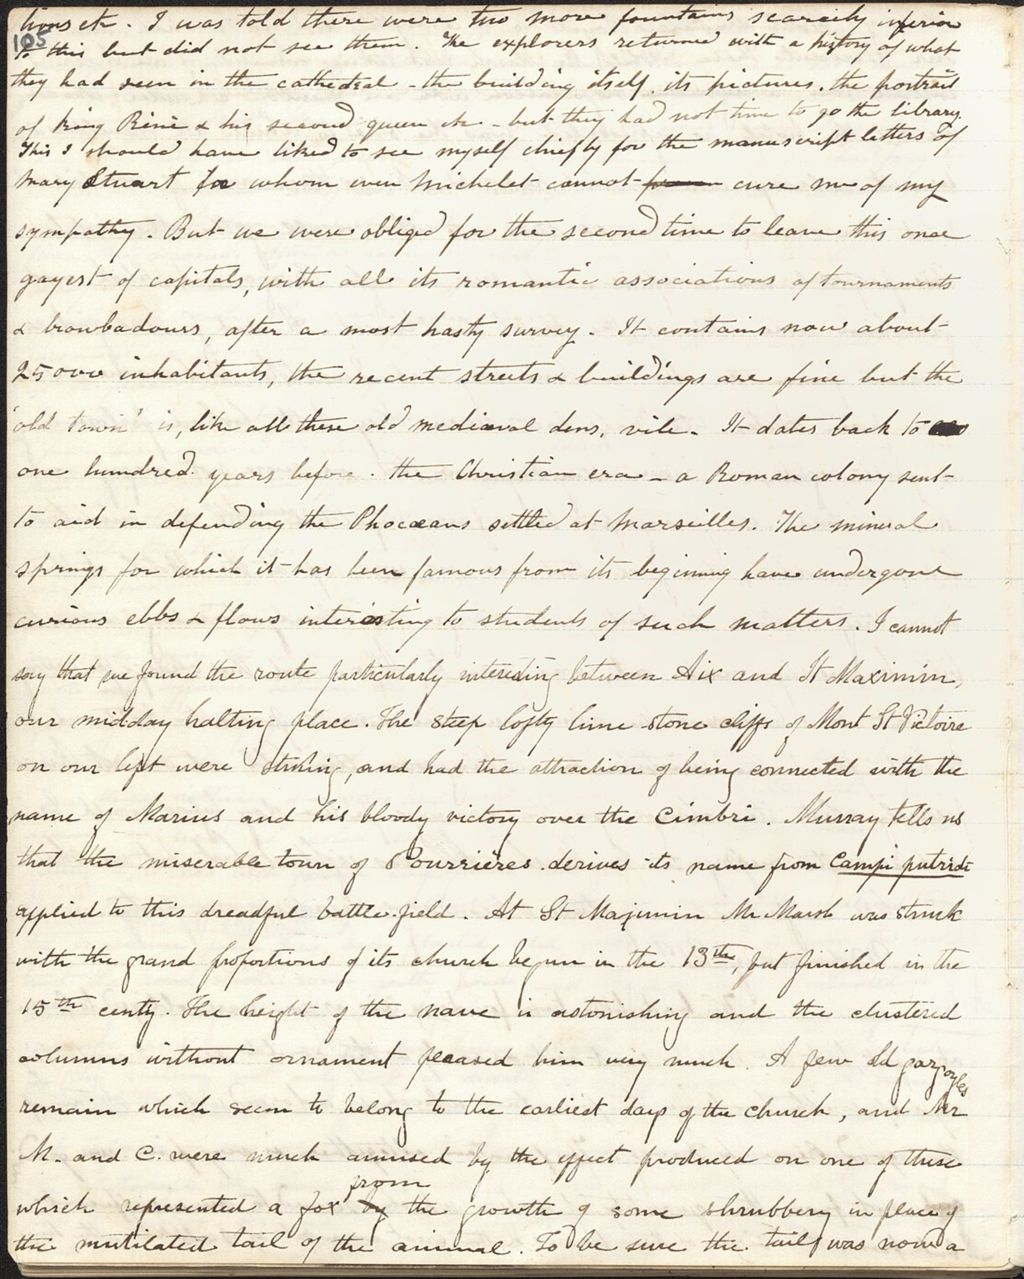 105
tions etc. I was told there were two more fountains scarcely inferior
to this but did not see them. The explorers returned with a history of what
they had seen in the cathedral - the building itself, its pictures, the portrait
of King René & his second queen etc. but they had not time to go the library.
This I should have liked to see myself chiefly for the manuscript letters of
Mary Stuart for whom even Michelet cannot cure me of my
sympathy. But we were obliged for the second time to leave this once
gayest of capitals, with all its romantic associations of tournaments
& troubadours, after a most hasty survey. It contains now about
25000 inhabitants, the recent streets & buildings are fine but the
'old town' is, like all these old mediæval dens, vile. It dates back to
one hundred years before the Christian era - a Roman colony sent
to aid in defending the Phocæans settled at Marseilles. The mineral
springs for which it has been famous from its beginning have undergone
curious ebbs & flows interesting to students of such matters. I cannot
say that we found the route particularly interesting between Aix and St Maximin,
our midday halting place. The steep lofty lime-stone cliffs of Mont St Victoire
on our left were striking, and had the attraction of being connected with the
name of Marius and his bloody victory over the Cimbri. Murray tells us
that the miserable town of Pourrières derives its name from Campi putridi
applied to this dreadful battle-field. At St Maximin Mr Marsh was struck
with the grand proportions of its church begun in the 13th, but finished in the
15th centy. The height of the nave is astonishing and the clustered
columns without ornament pleased him very much. A few old gargoyles
remain which seem to belong to the earliest days of the church, and Mr
M. and C. were much amused by the effect produced on one of these
which represented a fox from by the growth of some shrubbery in place of
the mutilated tail of the animal. To be sure the tail was now a